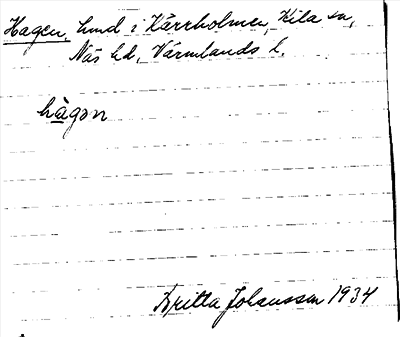 Hagen, hmd i Kärrholmen, Kila sn,
Näs hd, Värmlands l.
hàgən
Britta Johansson 1934